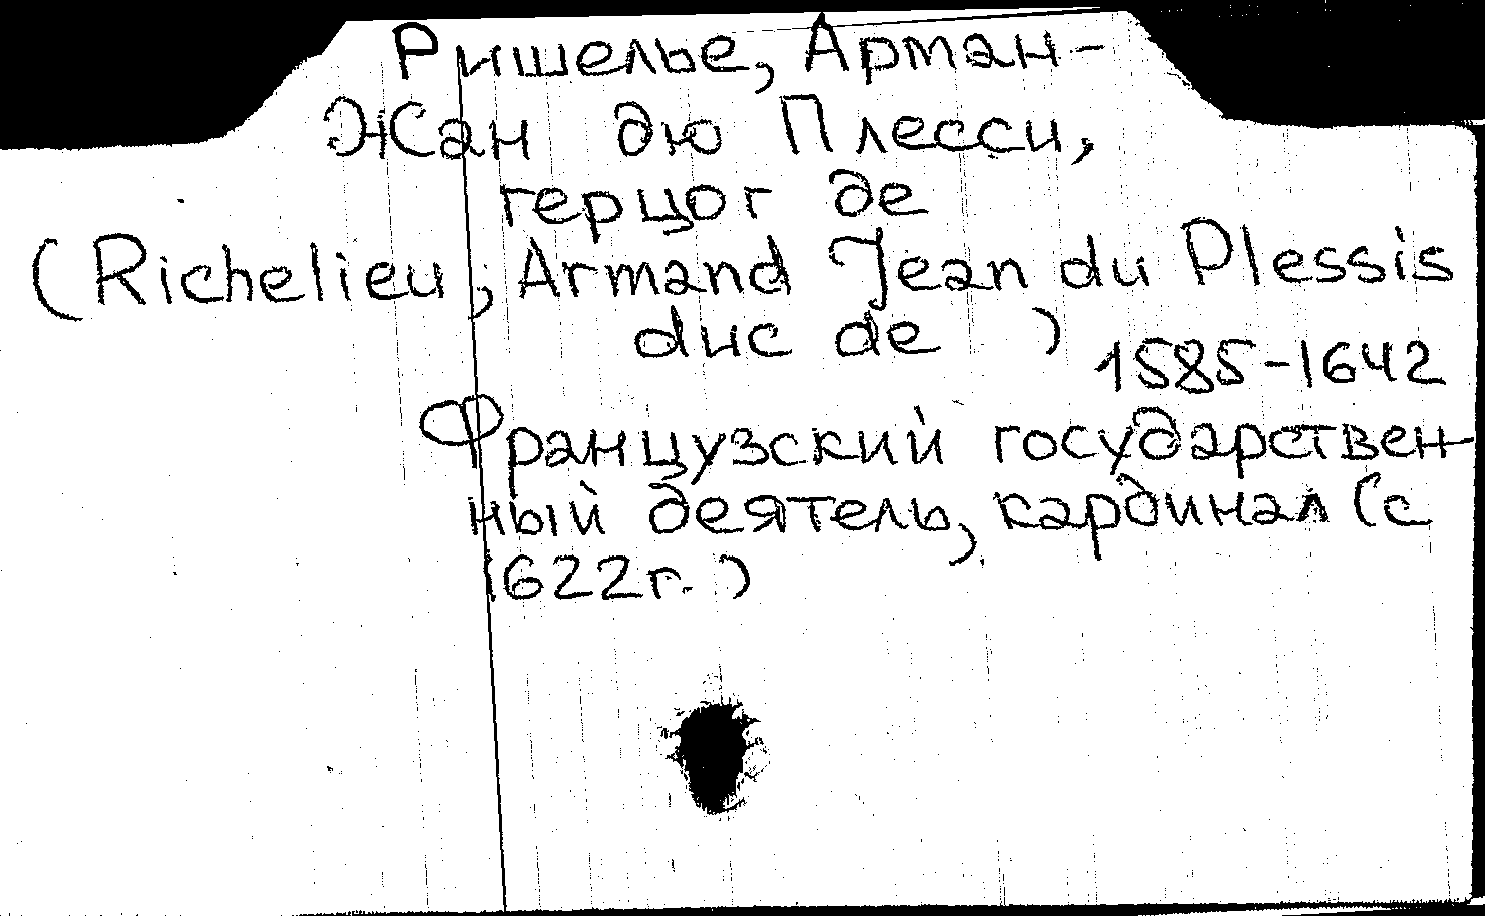 Ришелье, Арман-
Жан дю Плесси,
герцог де
(Richelieu, Armand Jean du Plessis
duc de )
1585-1642
Французский государствен-
ный деятель, кардинал (с
1622г.)